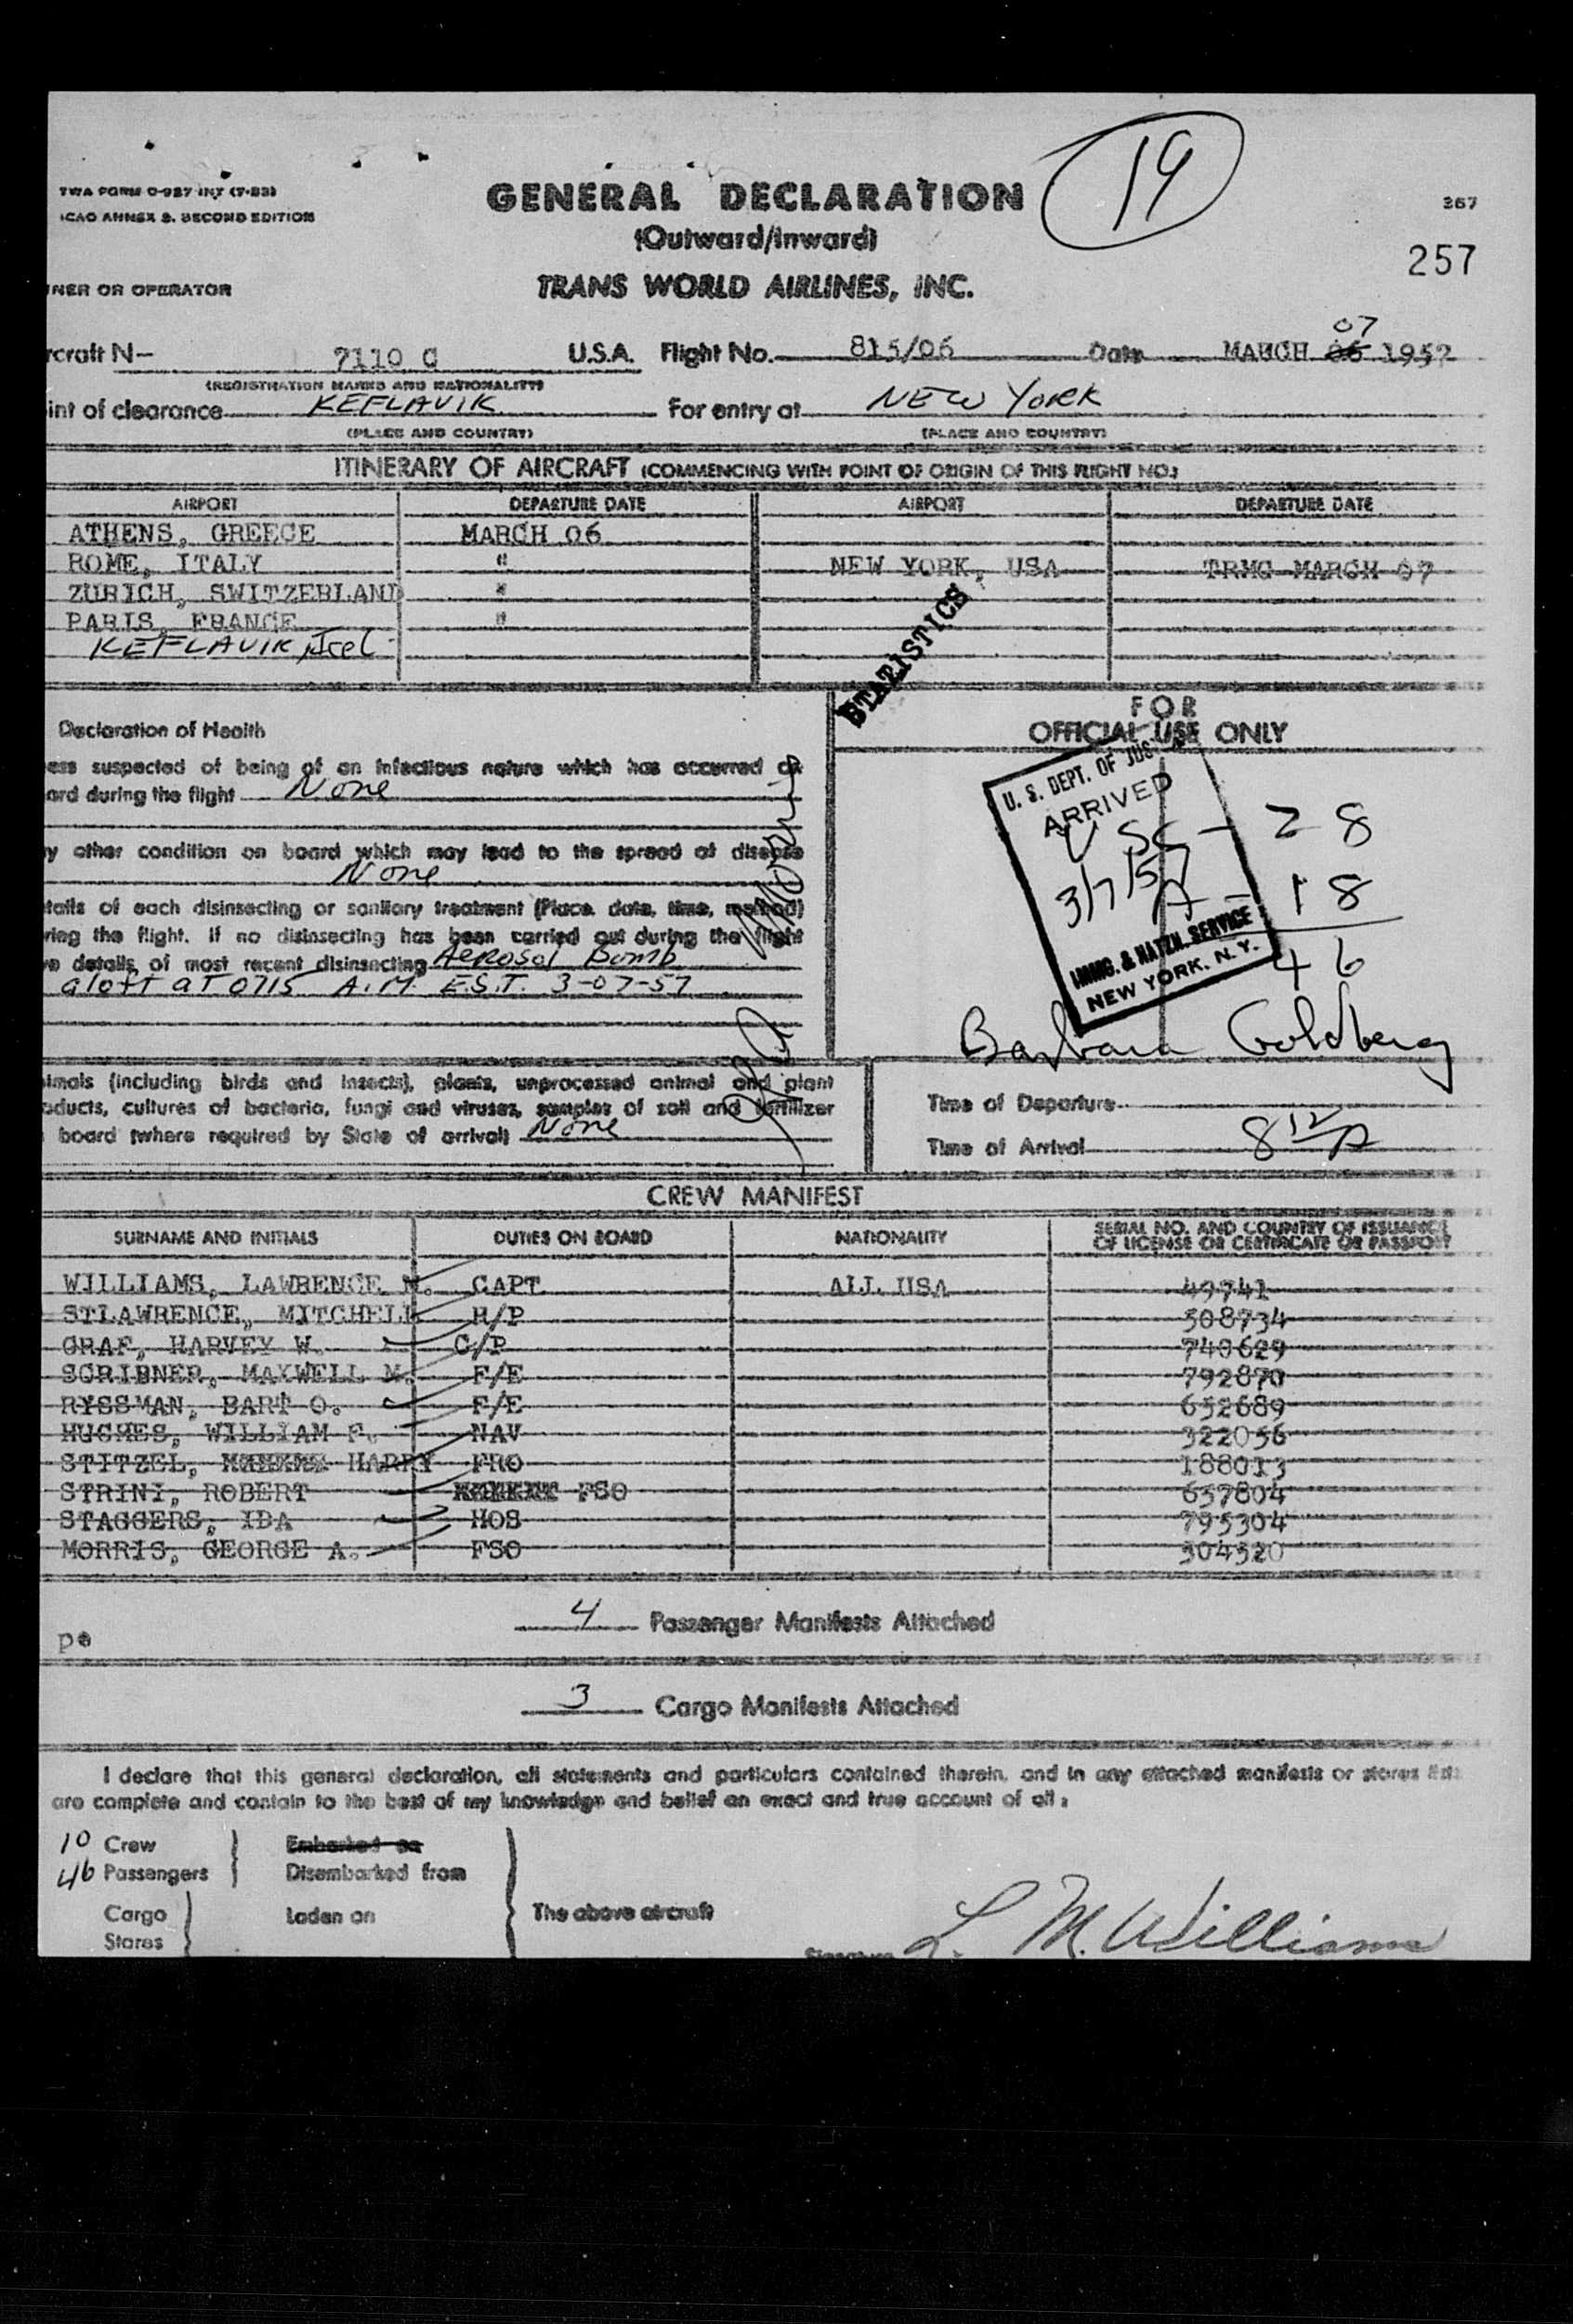 19
TWA FORM O-927 INT (7-53)
ICAO ANNEX 9. SECOND EDITION
GENERAL DECLARATION
(Outward/Inward)
TRANS WORLD AIRLINES, INC.
267
257
NER OR OPERATOR
07
rcraft N- 7110 C U.S.A. Flight No. 815/06 Date MARCH 06 1957
(REGISTRATION MARKS AND NATIONALITY)
int of clearance KEFLAVIK For entry at NEW YORK
(PLACE AND COUNTRY) (PLACE AND COUNTRY)
ITINERARY OF AIRCRAFT (COMMENCING WITH POINT OF ORIGIN OF THIS FLIGHT NO.)
AIRPORT DEPARTURE DATE AIRPORT DEPARTURE DATE
ATHENS, GREECE MARCH 06
ROME, ITALY " NEW YORK, USA TRMG MARCH 07
ZURICH, SWITZERLAND "
PARIS, FRANCE "
KEFLAVIK, Icel
STATISTICS
Declaration of Health
FOR
OFFICIAL USE ONLY
ess suspected of being of an infectious nature which has occurred on
ard during the flight None
y other condition on board which may lead to the spread of disease
None
tails of each disinsecting or sanitary treatment (Place, date, time, method)
ring the flight. If no disinsecting has been carried out during the flight
ve details of most recent disinsecting Aerosol Bomb
aloft at 0715 A.M. E.S.T. 3-07-57
U. S. DEPT. OF JUS
ARRIVED
USC - 28
3/7/57
A - 18
46
IMMG. & NATZN. SERVICE
NEW YORK. N.Y.
Barbara Goldberg
imals (including birds and insects), plants, unprocessed animal and plant
oducts, cultures of bacteria, fungi and viruses, samples of soil and fertilizer
board (where required by State of arrival) None
Time of Departure
Time of Arrival 8 12 A
CREW MANIFEST
SURNAME AND INITIALS DUTIES ON BOARD NATIONALITY SERIAL NO. AND COUNTRY OF ISSUANCE
OF LICENSE OR CERTIFICATE OR PASSPORT
WILLIAMS, LAWRENCE M. CAPT ALL USA 49741
STLAWRENCE, MITCHELL R/P 508734
GRAF, HARVEY W. C/P 740629
SCRIBNER, MAXWELL M. F/E 792870
RYSSMAN, BART O. F/E 652689
HUGHES, WILLIAM F. NAV 322056
STITZEL, HARRY FRO 188013
STRINI, ROBERT FSO 657804
STAGGERS, IDA HOS 795304
MORRIS, GEORGE A. FSO 304320
4 Passenger Manifests Attached
pe
3 Cargo Manifests Attached
I declare that this general declaration, all statements and particulars contained therein, and in any attached manifests or stores lists
are complete and contain to the best of my knowledge and belief an exact and true account of all:
10 Crew Embarked on
46 Passengers Disembarked from
Cargo Laden on The above aircraft
Stores
Signature L. M. Williams